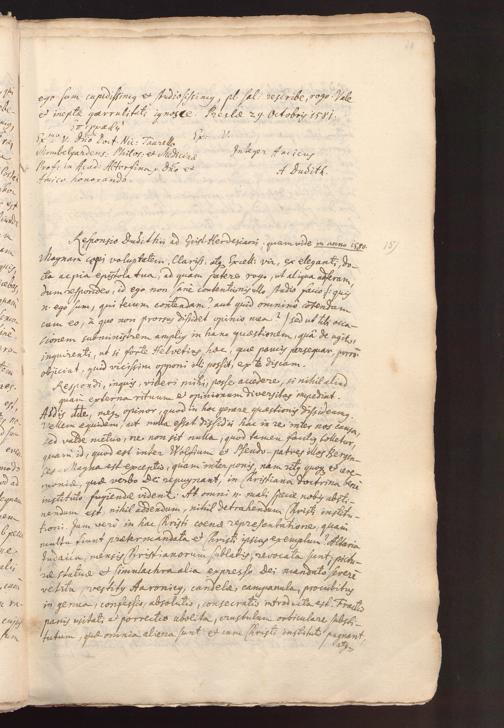 ego sum cupidissimus et studiosissimus, pl. sal. rescribe, rogo. Vale
et ineptæ garrulitati ignosce. Preslæ 29 Octobris 1581.
V. Dno Doct. Nic: Taurello
Mombelgardens. Philos. et Medicinæ
Profs. in Acad. Altorfina, Dno et
Amico honorando.
Integer Amicus
A Dudith.
Responsio Dudithii ad Epist. Herdesiani, quam vide in anno 1580.
151
Magnam cepi voluptatem, Clariss. atq. vir, ex eleganti, do-
cta epistola tua, ad quam patere rogo, ut aliqua afferam,
dum respondeo, id ego non sane contentionis ullo studio facio (quis
n. ego sum, qui tecum contendam? aut quid omnino contendam
cum eo, a quo non prorsus dissidet opinio mea?) sed ut tibi occa-
sionem subministrem amplius in hanc quæstionem, quâ de agitur,
inquirenti, ut si forte Helvetius hæc, quæ paucis persequar,
objiciat, quid vicissim opponi illi possit, ex te discam.
Respondi, inquis, videri mihi, posse accedere, si nihil aliud
quam externa rituum et opinionum diversitas impediat.
opinor, quod in hoc genere quæstionis dissideamus,
Vellem equidem, ut nulla esset dissidii hac in re inter nos causa,
sed valde metuo, ne non sit nulla, quod tamen facilius toletur,
quam id, quod est inter Wolfium et Pseudo-patres illos Bergen-
ses. Magna est exceptio, quam interponis, nam ritus quoq. et cere-
moniæ, quæ verbo Dei repugnant, in Christiana doctrina bene
instituto fugiendæ videntur. At omni n. mali specie nobis absti-
nendum est. nihil addendum, nihil detrahendum Christi institu-
tioni. Jam vero in hac Christi coenæ representatione, quam
multa fiunt præter mandata et Christi ipsius exemplum? Altaria
Judaica, mensis Christianorum sublatis, revocata sunt, pictu-
ræ statuæ et simulachra alia expresso Dei mandato
vetita, vestitus Aaronicus, candelæ, campanula, procubitus
in genua, confessio, absolutio, consecratio introducta est. Fractio
panis usitati et porrectio abolita, crustulum orbiculare substi-
tutum, quæ omnia aliena sunt et cum Christi instituto pugnant,
atq.